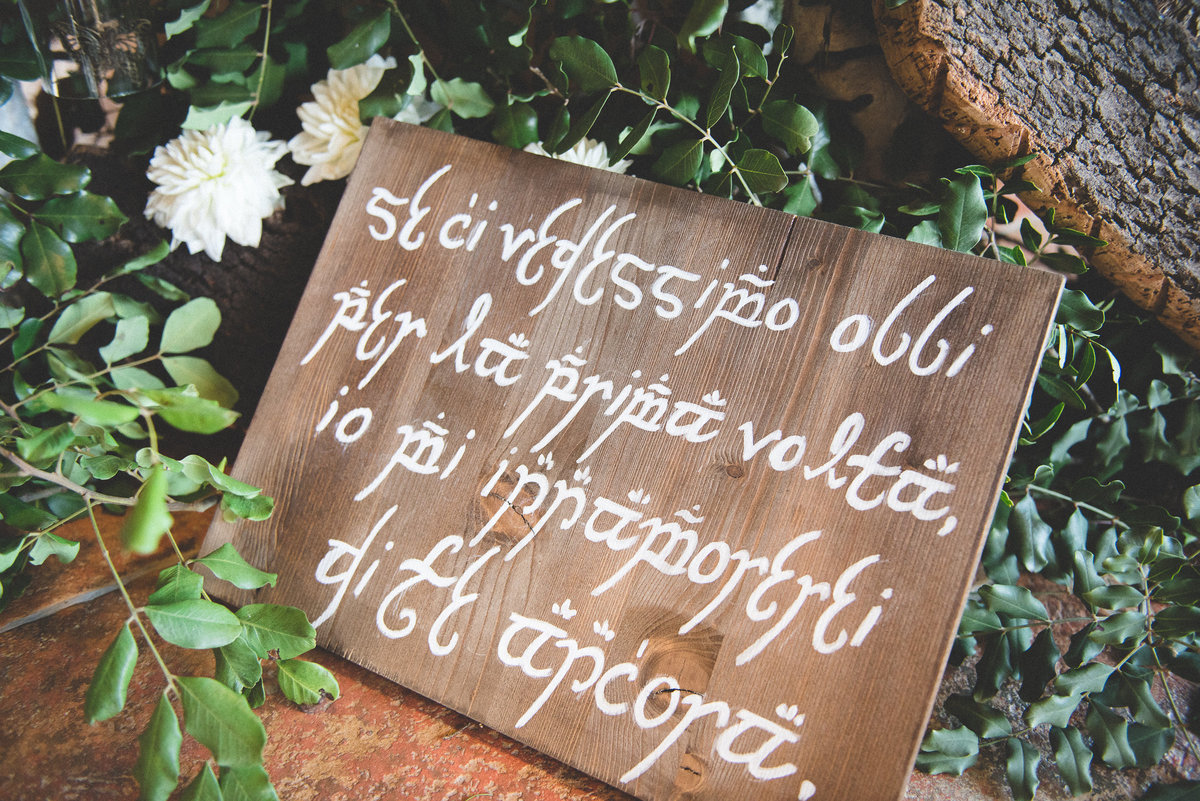 se ci vedessimo oggi
per la prima volta,
io mi innamorerei
di te ancora.